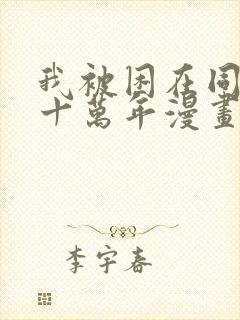 我被困在同
十萬年漫畫
李宇春